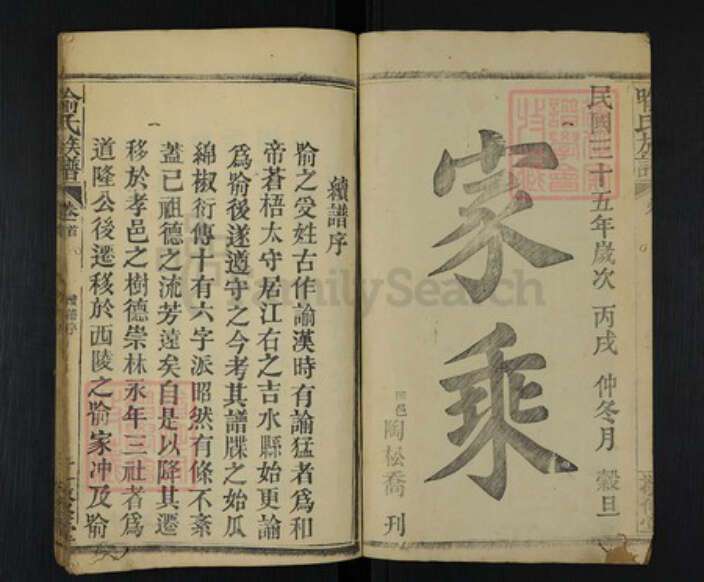 民國三十五年歲次丙戌仲冬月穀旦
家乘
陶松喬刊
續譜序
喻之受姓古作諭漢時有諭猛者爲和
帝蒼梧太守居江右之吉水縣始更諭
爲喻後遂遵守之今考其譜牒之始瓜
綿椒衍傳十有六字派昭然有條不紊
蓋已祖德之流芳遠矣自是以降其遷
移於孝邑之樹德崇林永年三社者爲
道隆公後遷移於西陵之喻家冲及喻
喻氏族譜
卷首
續譜序
FamilySearch